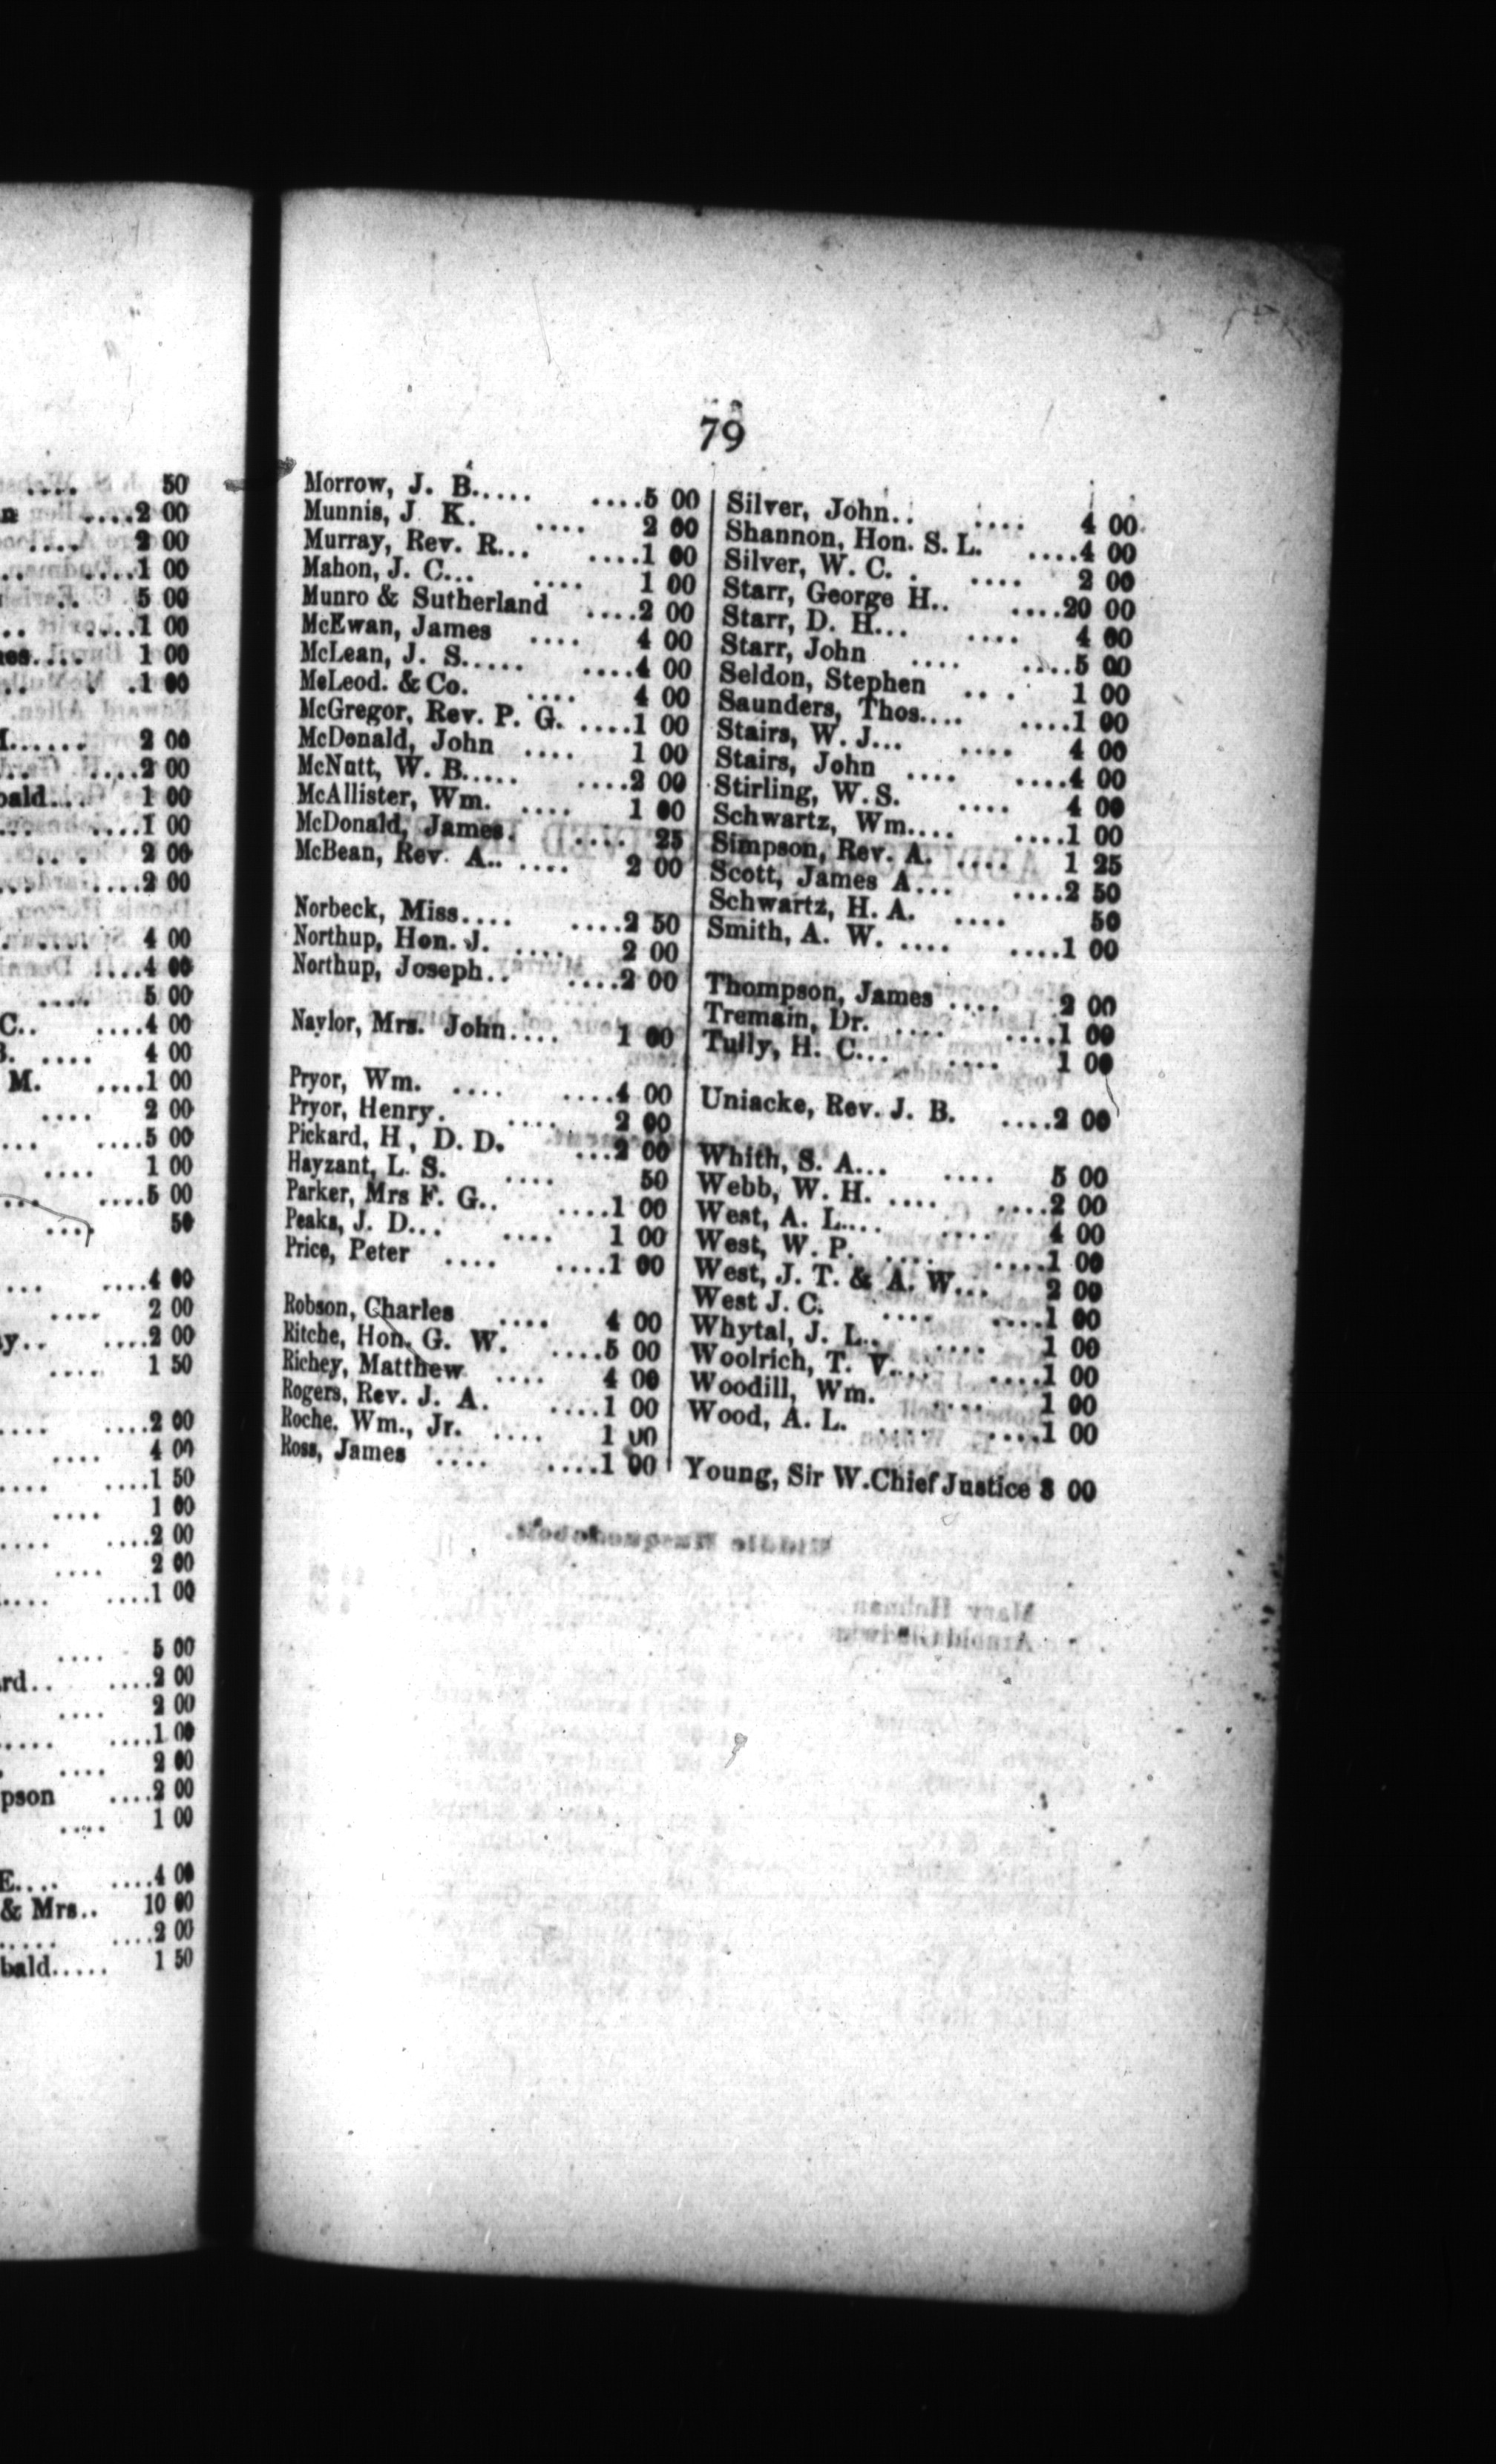 79
Morrow, J. B..... ....5 00
Munnis, J K. .... 2 00
Murray, Rev. R... ....1 00
Mahon, J. C... .... 1 00
Munro & Sutherland ....2 00
McEwan, James .... 4 00
McLean, J. S..... ....4 00
McLeod. & Co. .... 4 00
McGregor, Rev. P. G. ....1 00
McDonald, John .... 1 00
McNutt, W. B..... ....2 00
McAllister, Wm. .... 1 00
McDonald, James. .... 25
McBean, Rev. A.. .... 2 00
Norbeck, Miss.... ....2 50
Northup, Hon. J. .... 2 00
Northup, Joseph.. ....2 00
Naylor, Mrs. John.... 1 00
Pryor, Wm. .... ....4 00
Pryor, Henry. .... 2 00
Pickard, H , D. D. ...2 00
Hayzant, L. S. .... 50
Parker, Mrs F. G.. ....1 00
Peaks, J. D... .... 1 00
Price, Peter .... ....1 00
Robson, Charles .... 4 00
Ritche, Hon. G. W. ....5 00
Richey, Matthew .... 4 00
Rogers, Rev. J. A. ....1 00
Roche. Wm., Jr. .... 1 00
Ross, James .... ....1 00
Silver, John.. .... 4 00
Shannon, Hon. S. L. ....4 00
Silver, W. C. . .... 2 00
Starr, George H.. ....20 00
Starr, D. H... .... 4 00
Starr, John .... ....5 00
Seldon, Stephen .... 1 00
Saunders, Thos.... ....1 00
Stairs, W. J... .... 4 00
Stairs, John .... ....4 00
Stirling, W. S. .... 4 00
Schwartz, Wm.... ....1 00
Simpson, Rev. A. .... 1 25
Scott, James A... ....2 50
Schwartz, H. A. .... 50
Smith, A. W. .... ....1 00
Thompson, James .... 2 00
Tremain, Dr. .... ....1 00
Tully, H. C... .... 1 00
Uniacke, Rev. J. B. ....2 00
Whith, S. A... .... 5 00
Webb, W. H. .... ....2 00
West, A. L.... .... 4 00
West, W. P. .... ....1 00
West, J. T. & A. W... 2 00
West J. C. .... ....1 00
Whytal, J. L.. .... 1 00
Woolrich, T. V.... ....1 00
Woodill, Wm. .... 1 00
Wood, A. L. .... ....1 00
Young, Sir W. Chief Justice 3 00